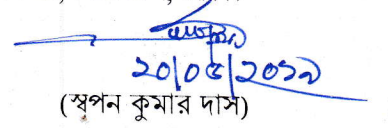 ২০/০৫/২০১৯
(স্বপন কুমার দাস)